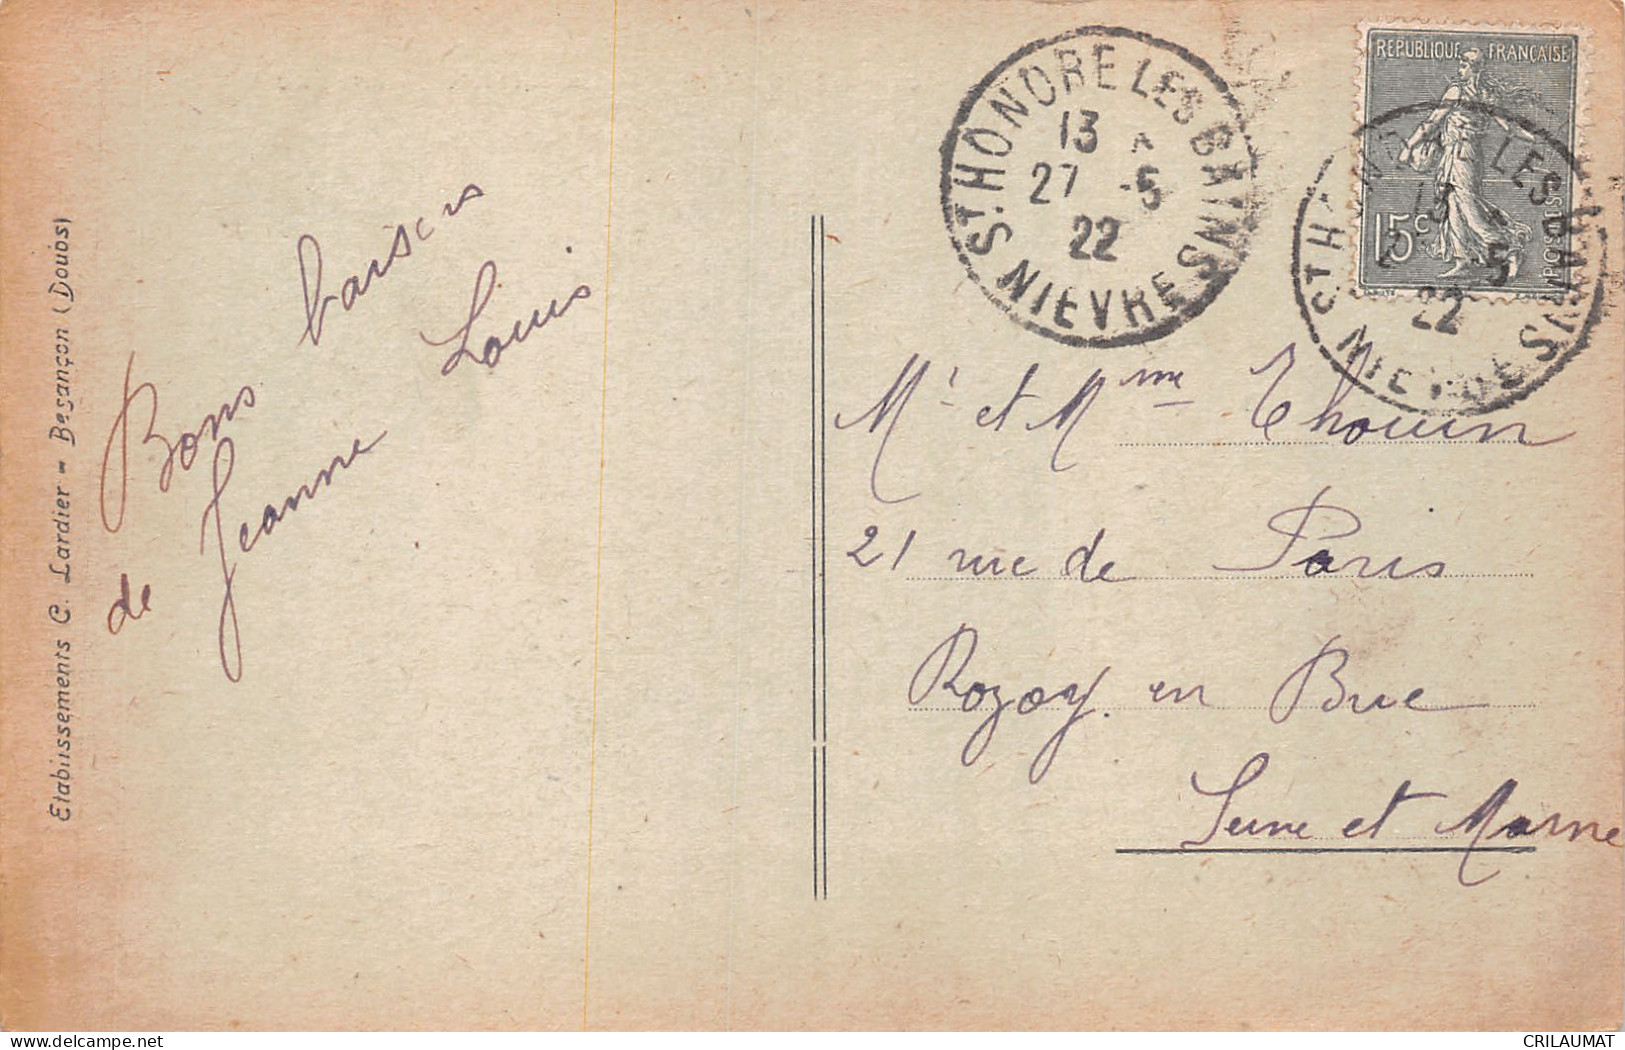 Etablissements C. Lardier - Besançon (Doubs)
Bons baisers
de Jeanne Louis
ST. HONORE LES BAINS
13
27 -5
22
NIEVRE
REPUBLIQUE FRANÇAISE
15c
POSTES
LES BAINS
13
-5
22
NIEVRE
Mr et Mme Thouin
21 rue de Paris
Rozoy en Brie
Seine et Marne
delcampe.net
CRILAUMAT